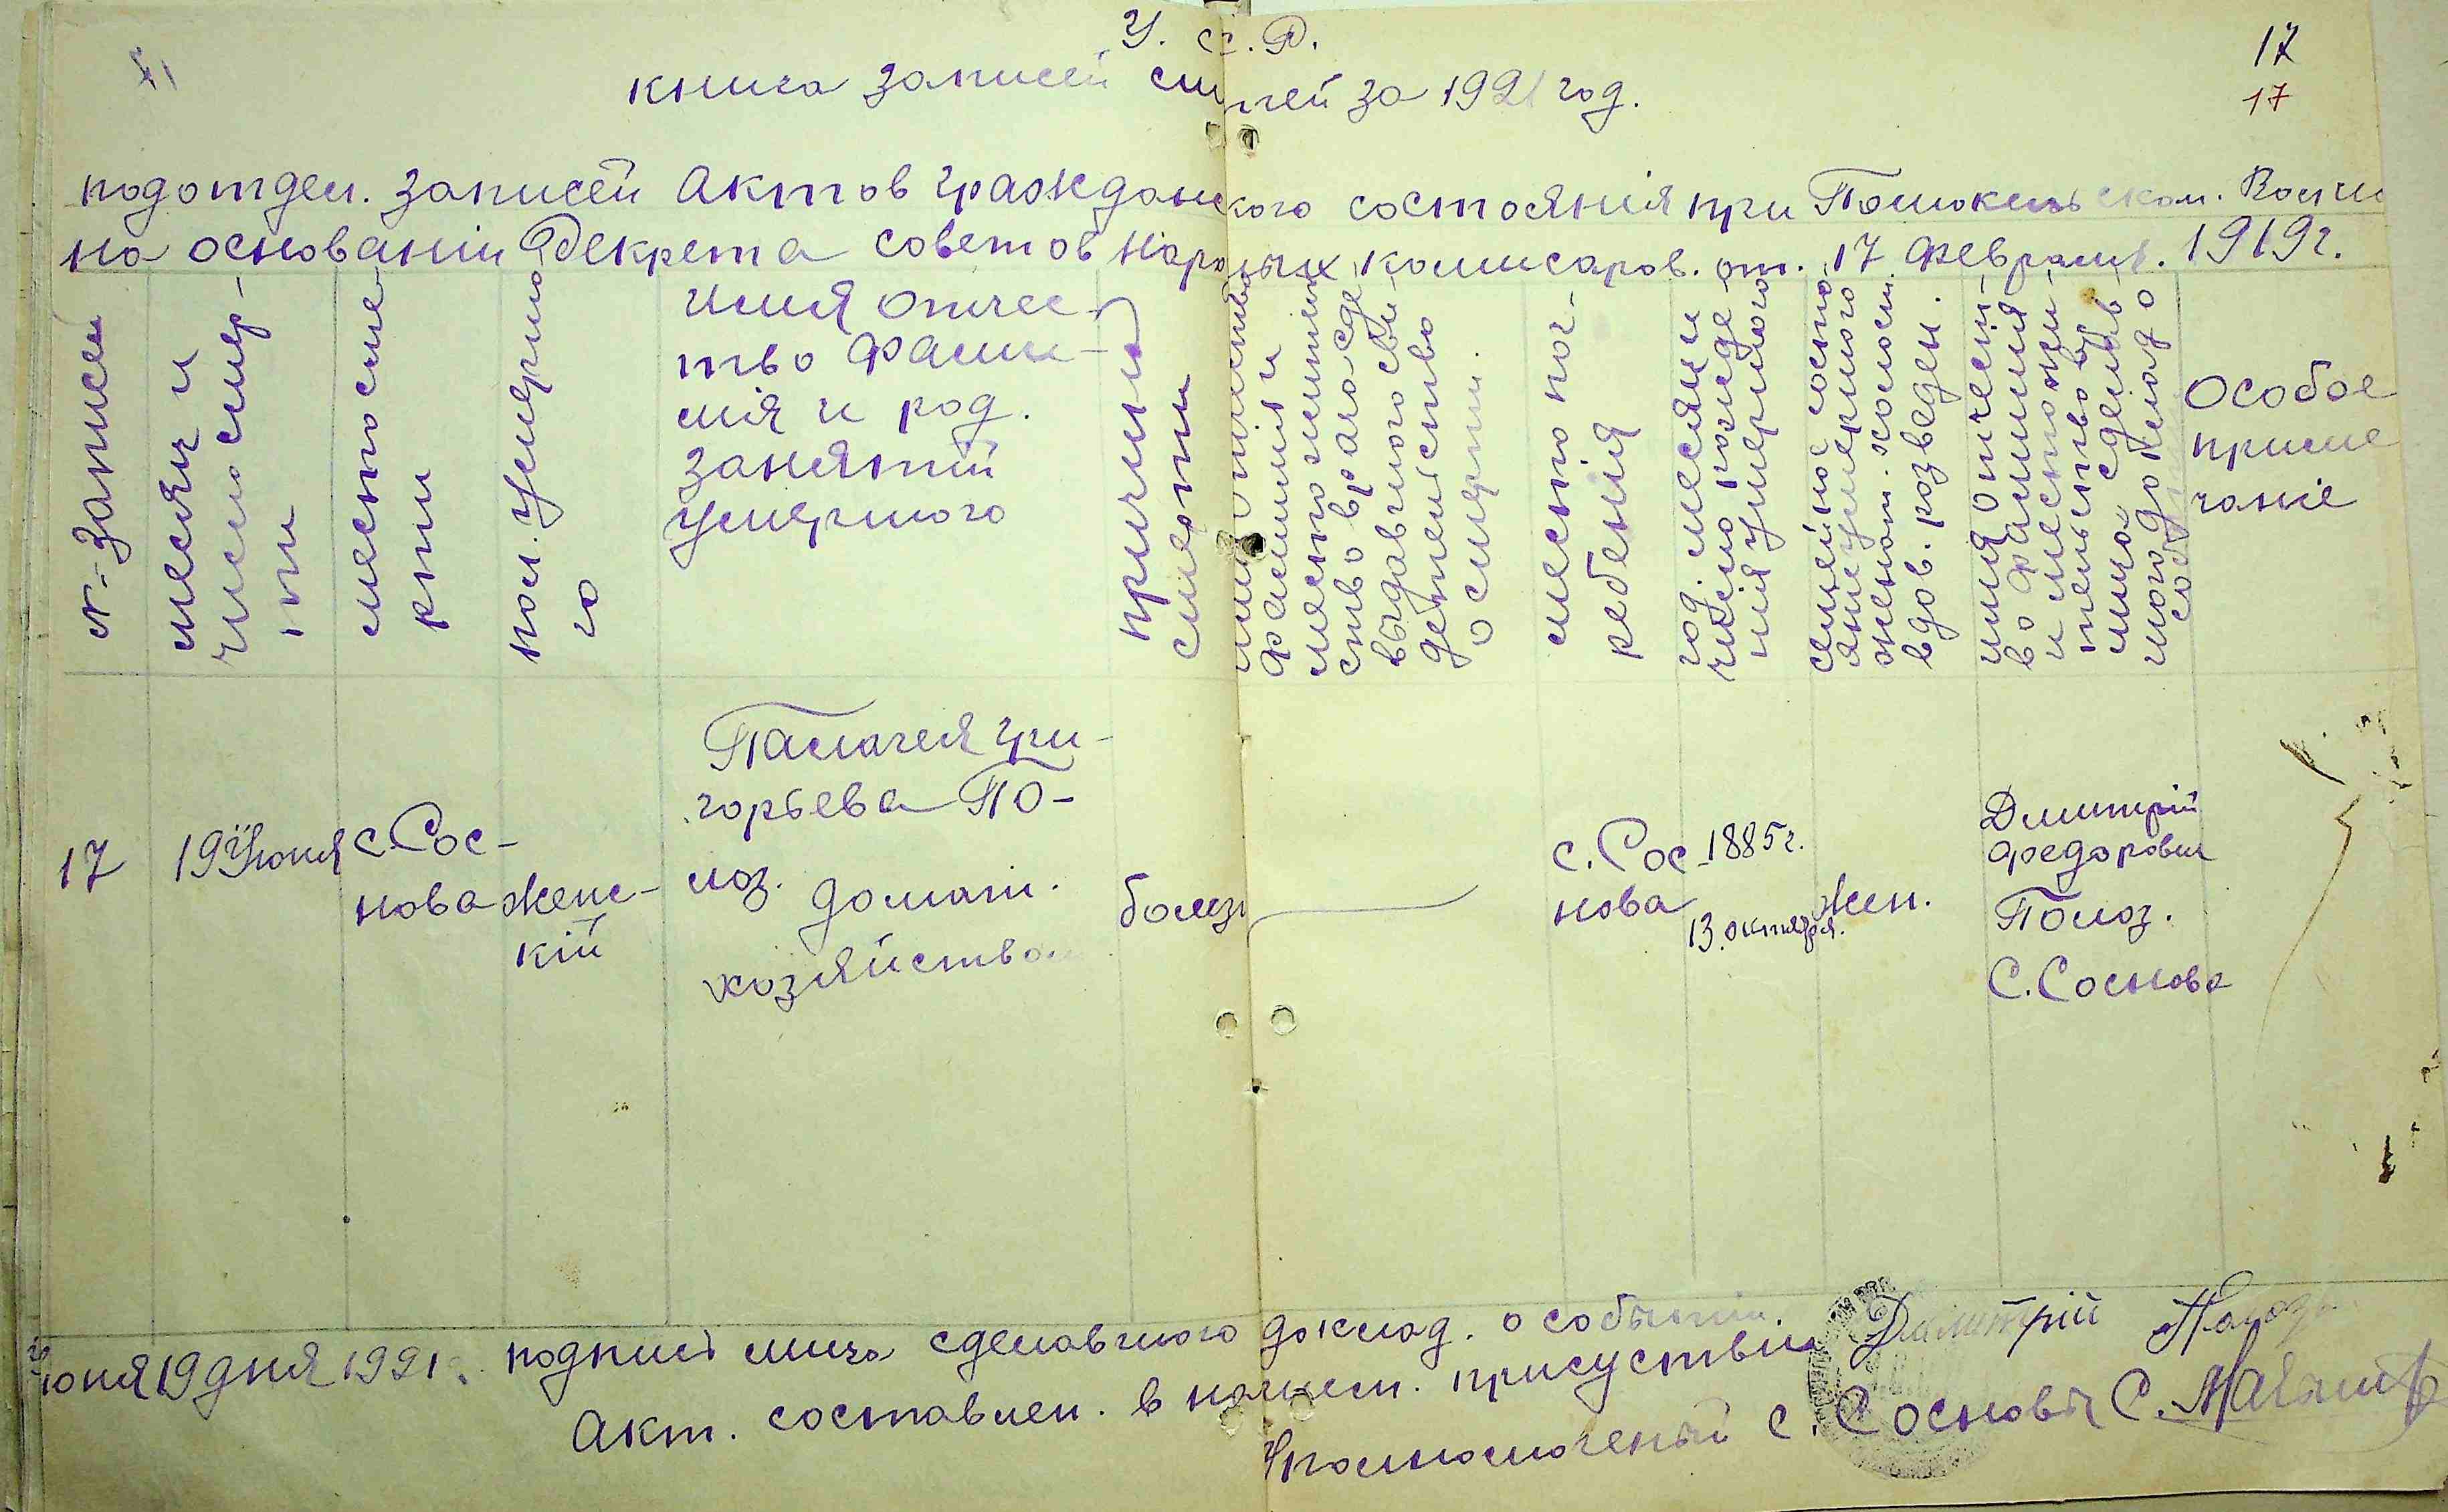 У. С. Р.
17
17
книга записей смертей за 1921 год.
подотдел. записей Актов гражданского состоянія при
на основаніи Декрета советов Народных комисаров. от. 17 февраля. 1919 г.
№ записи
месяц и
число смер-
ти
место сме-
рти
пол. умершо
го
имя отчес-
тво фами-
лія и род.
занятій
умершого
причины
смерти
фамилія и
место житель
ство врача сде
выдавшого сви-
детельство
о смерти.
место пог-
ребенія
год. месяц и
число рожде
нія умершого
семейное состо
яніе умершого
женат. холост
вдов. розведен.
имя отчест-
во фамилия
и место жи-
тельство
лица сделав
шого доклад о
соб
Особое
приме
чаніе
17
19 Июня
с. Сос-
нова
женс-
кій
Палагея Гри-
горьева По-
лоз. домаш.
хозяйством
болез
с. Сос
нова
1885 г.
13. октября.
жен.
Дмитрій
Федорович
Полоз.
С. Соснова
Июня 19 дня 1921 г. подпись лица сделавшого доклад. о событіи. Дмитрій Полоз
Акт. составлен. в нашем. присуствіи
Уполномоченый с. Сосновы С.